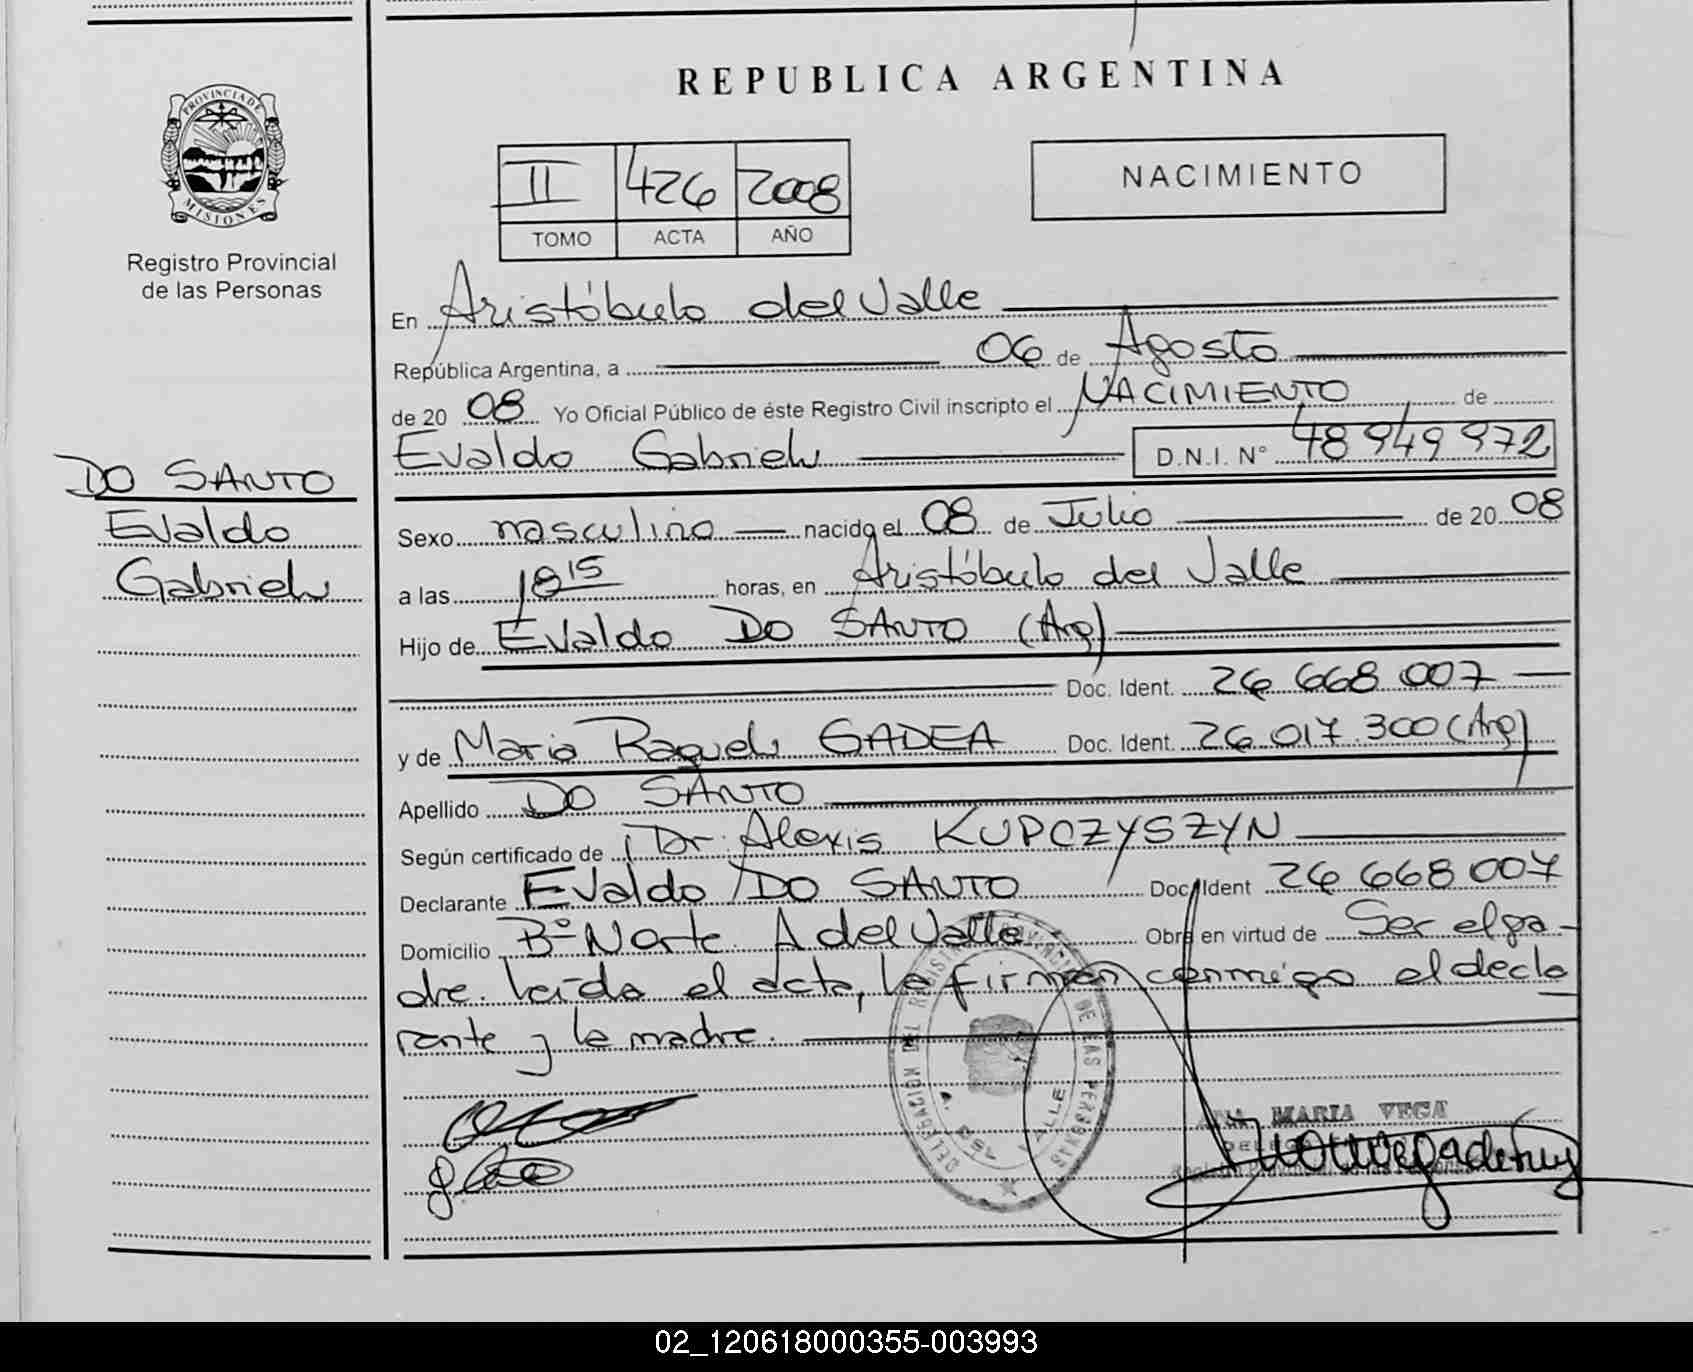 REPUBLICA ARGENTINA
PROVINCIA DE
MISIONES
Registro Provincial
de las Personas
II 426 2008
TOMO ACTA AÑO
NACIMIENTO
DO SANTO
Evaldo
Gabriel
En Aristóbulo del Valle
República Argentina, a 06 de Agosto
de 20 08 Yo Oficial Público de éste Registro Civil inscripto el NACIMIENTO de
Evaldo Gabriel D.N.I. Nº 48 949 972
Sexo masculino nacido el 08 de Julio de 20 08
a las 18 15 horas, en Aristóbulo del Valle
Hijo de Evaldo DO SANTO (Arg)
Doc. Ident. 26 668 007
y de Maria Raquel GADEA Doc. Ident. 26 017.300 (Arg)
Apellido DO SANTO
Según certificado de Dr. Alexis KUPCZYSZYN
Declarante Evaldo DO SANTO Doc. Ident 26 668 007
Domicilio Bº Norte A del Valle Obra en virtud de Ser el pa-
dre. Leída el acta, la firman conmigo el decla
rante y la madre.
DELEGACION DEL REGISTRO PROVINCIAL DE LAS PERSONAS
A. DEL VALLE
ANA MARIA VEGA
02_120618000355-003993